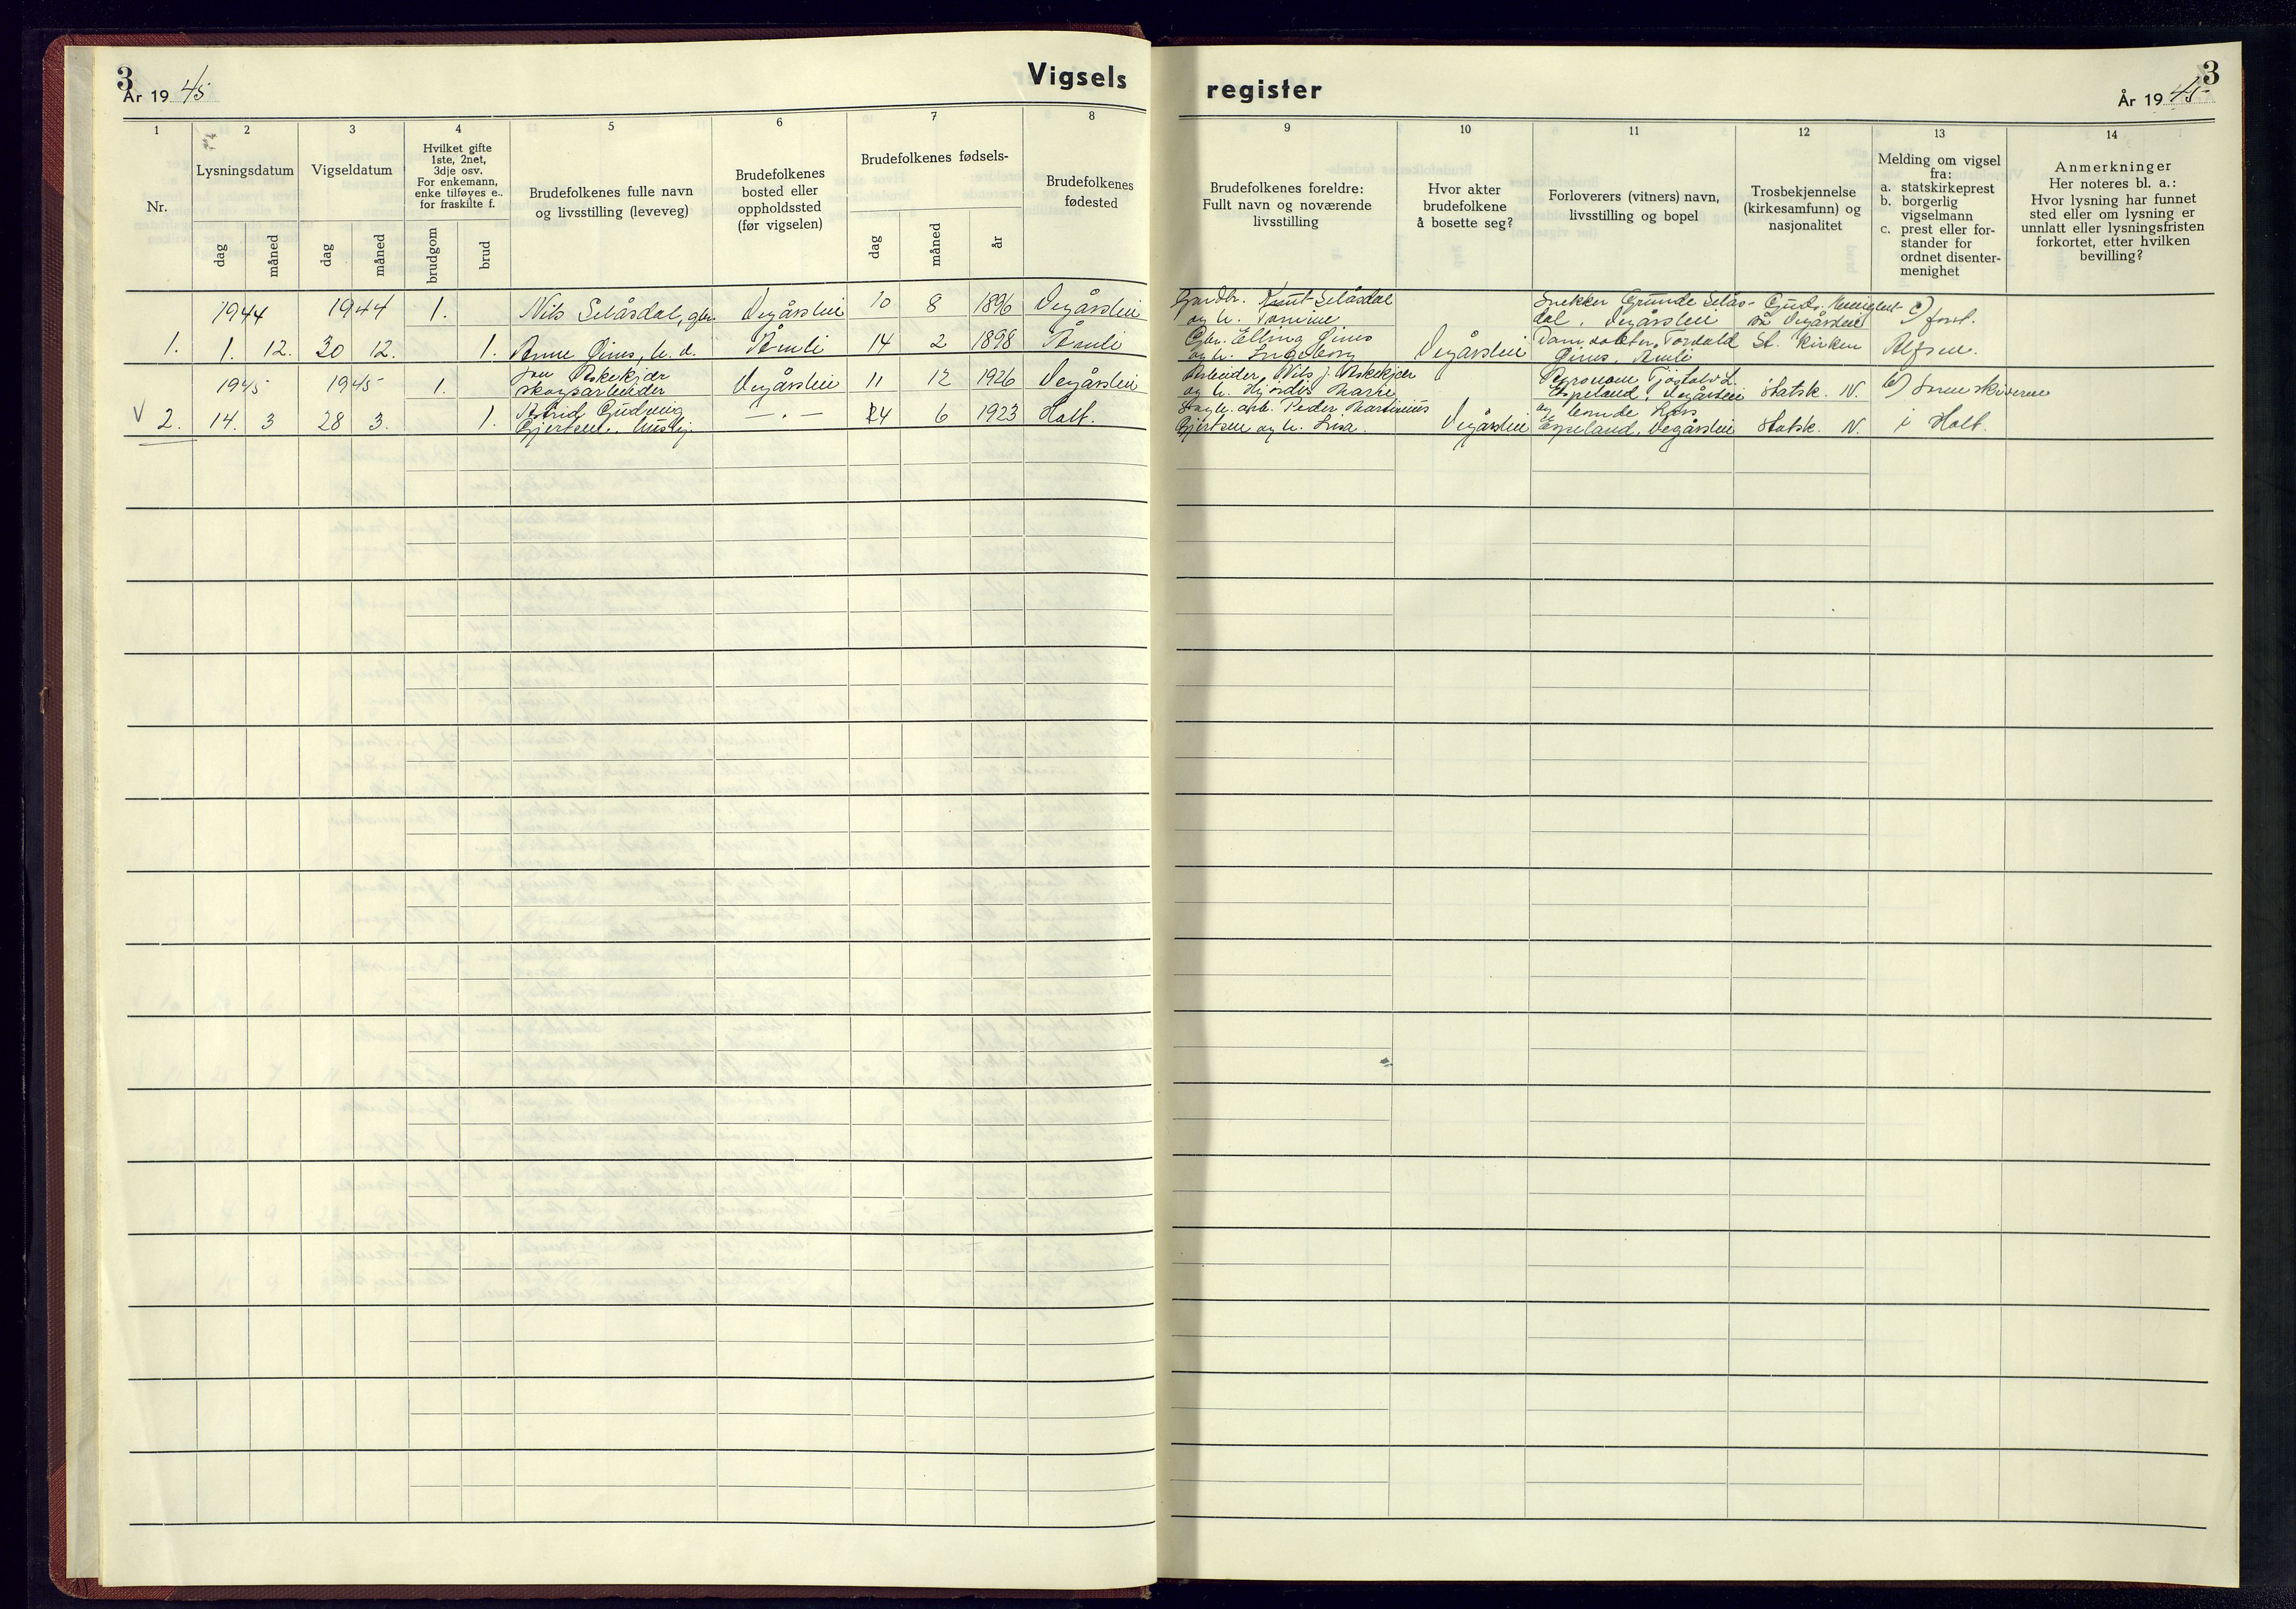 3
År 19 45
Vigsels
1 2 3 4 5 6 7 8
Nr.
Lysningsdatum
dag måned
Vigseldatum
dag måned
Hvilket gifte
1ste, 2net,
3dje osv.
For enkemann,
enke tilføyes e.,
for fraskilte f.
brudgom brud
Brudefolkenes fulle navn
og livsstilling (leveveg)
Brudefolkenes
bosted eller
oppholdssted
(før vigselen)
Brudefolkenes fødsels-
dag måned år
Brudefolkenes
fødested
1944 1944 1. Nils Selåsdal, gbr. Vegårshei 10 8 1896 Vegårshei
1. 1. 12. 30 12. 1. Anne h. d. Åmli 14 2 1898 Åmli
1945 1945 1. Askekjær
skogsarbeider Vegårshei 11 12 1926 Vegårshei
V 2. 14. 3 28 3. 1. Astrid Gudring
Gjertsen, — " — 24 6 1923 Holt.
register
3
År 19 45
9 10 11 12 13 14
Brudefolkenes foreldre:
Fullt navn og noværende
livsstilling
Hvor akter
brudefolkene
å bosette seg?
Forloverers (vitners) navn,
livsstilling og bopel
Trosbekjennelse
(kirkesamfunn) og
nasjonalitet
Melding om vigsel
fra:
a. statskirkeprest
b. borgerlig
vigselmann
c. prest eller for-
stander for
ordnet disenter-
menighet
Anmerkninger
Her noteres bl. a.:
Hvor lysning har funnet
sted eller om lysning er
unnlatt eller lysningsfristen
forkortet, etter hvilken
bevilling?
Gardbr. Knut Selåsdal
og h. Tomine
Snekker Gunde Selås-
dal, Vegårshei
Guds Menighet
på Vegårshei
c) forst.
Gbr. Elling
og h. Ingeborg
Vegårshei
Tordald
Åmli
St. Kirken
Alfsen.
Arbeider Nils J. Askekjær
og h. Hjördis Marie
Tjöstolv L.
Espeland, Vegårshei
Statsk. N.
b) Sorenskriveren
arb. Peder Martinius
Gjertsen og h. Lisa.
Vegårshei
og
Espeland, Vegårshei
Statsk. N.
i Holt.